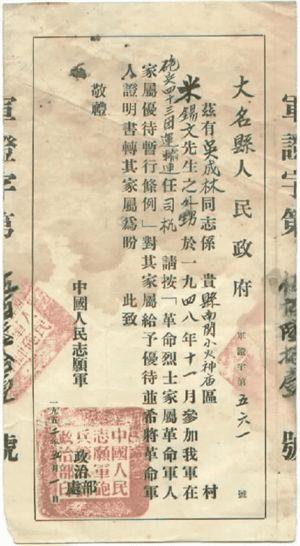 軍證字第
號
大名縣人民政府
軍證字第五六一號
茲有吳成林同志係 貴縣南關小火神庙區 村
米錫文先生之外甥於一九四八年十一月參加我軍在
砲兵四十三团運輸連任司机 請按「革命烈士家屬革命軍人
家屬優待暫行條例」對其家屬給予優待並希將革命軍
人證明書轉其家屬為盼 此致
敬禮
中國人民志願軍
政治部
處
一九五 年 月 一日
中國人民志願軍砲兵 政治部
軍證字第
號